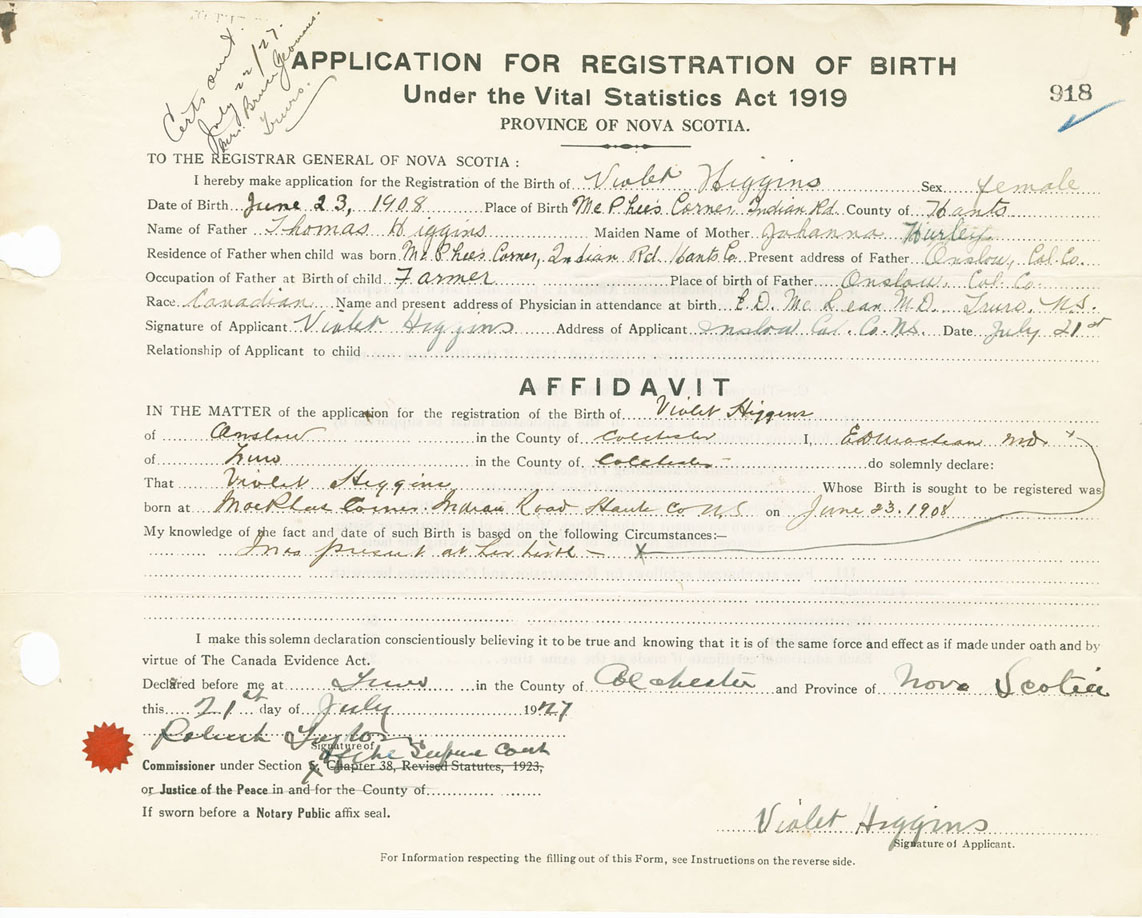 Certs out.
July 22/27.
Mrs. Bruce Yeomans.
Truro.
APPLICATION FOR REGISTRATION OF BIRTH
Under the Vital Statistics Act 1919
918
PROVINCE OF NOVA SCOTIA.
TO THE REGISTRAR GENERAL OF NOVA SCOTIA :
I hereby make application for the Registration of the Birth of Violet Higgins Sex female
Date of Birth June 23, 1908 Place of Birth McPhee's Corner, Indian Rd. County of Hants
Name of Father Thomas Higgins Maiden Name of Mother Johanna Hurley
Residence of Father when child was born McPhee's Corner, Indian Rd. Hants Co. Present address of Father Onslow, Col. Co.
Occupation of Father at Birth of child Farmer Place of birth of Father Onslow Col. Co.
Race Canadian Name and present address of Physician in attendance at birth E.D. McLean M.D. Truro, N.S.
Signature of Applicant Violet Higgins Address of Applicant Onslow Col. Co. N.S. Date July 21st
Relationship of Applicant to child
AFFIDAVIT
IN THE MATTER of the application for the registration of the Birth of Violet Higgins
of Onslow in the County of Colchester I, MD
of Truro in the County of Colchester do solemnly declare:
That Violet Higgins Whose Birth is sought to be registered was
born at Corner Indian Road Hants Co NS on June 23. 1908
My knowledge of the fact and date of such Birth is based on the following Circumstances:—
I was present at her birth — X
I make this solemn declaration conscientiously believing it to be true and knowing that it is of the same force and effect as if made under oath and by
virtue of The Canada Evidence Act.
Declared before me at Truro in the County of Colchester and Province of Nova Scotia
this 21st day of July 1927
Robert Taylor
Signature of
of the Supreme Court
Commissioner under Section 5, Chapter 38, Revised Statutes, 1923,
or Justice of the Peace in and for the County of
If sworn before a Notary Public affix seal.
Violet Higgins
Signature of Applicant.
For Information respecting the filling out of this Form, see Instructions on the reverse side.